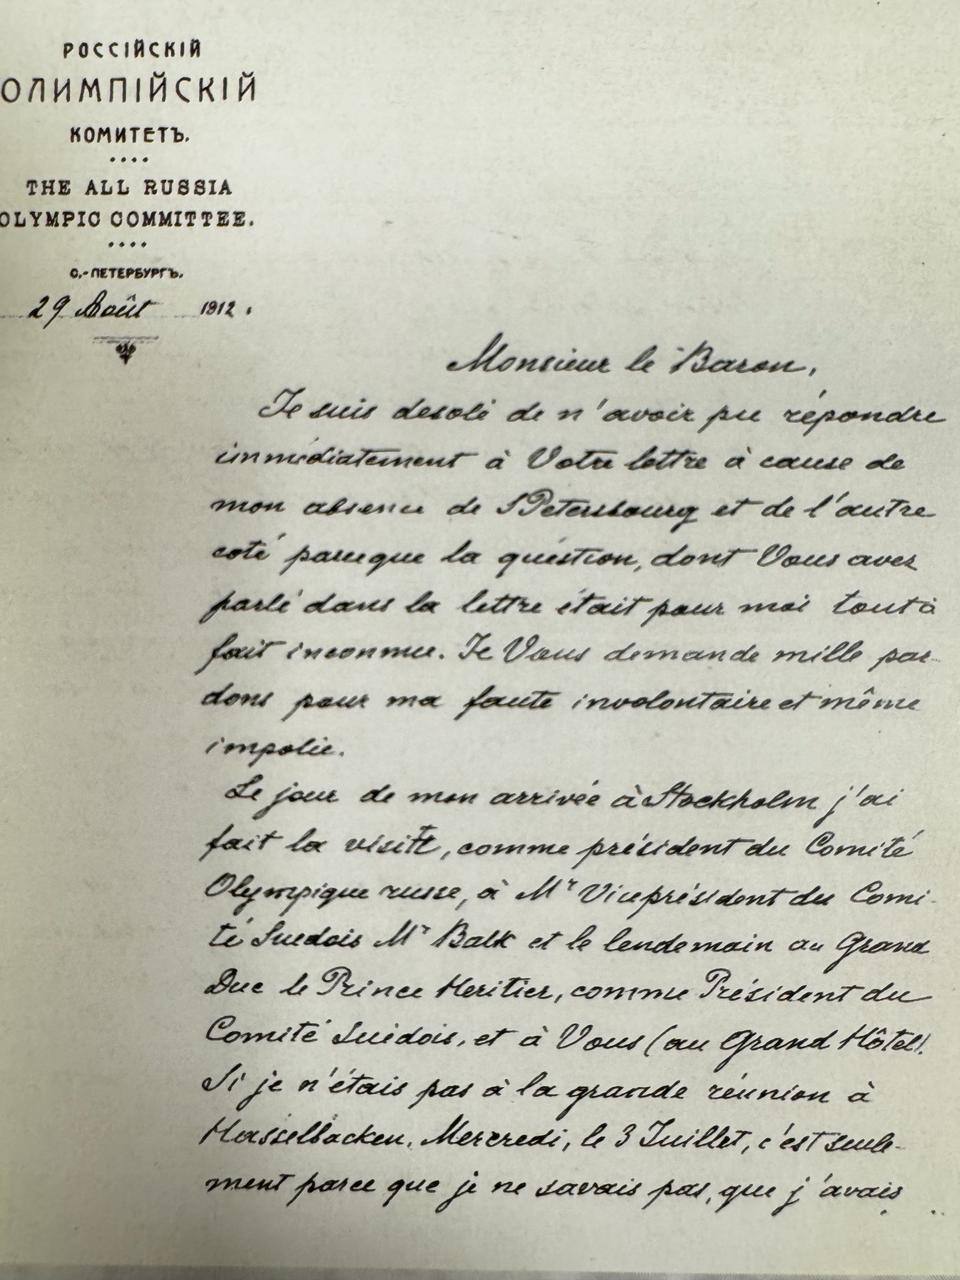 РОССІЙСКІЙ
ОЛИМПІЙСКІЙ
КОМИТЕТЪ.
THE ALL RUSSIA
OLYMPIC COMMITTEE.
С.-ПЕТЕРБУРГЪ.
29 Août 1912.
Monsieur le Baron,
Je suis desolé de n'avoir pu répondre
immédiatement à Votre lettre à cause de
mon absence de SPetersbourg et de l'autre
coté parceque la question, dont Vous avez
parlé dans la lettre était pour moi tout à
fait inconnue. Je Vous demande mille par-
dons pour ma faute involontaire et même
impolie.
Le jour de mon arrivée à Stockholm j'ai
fait la visite, comme président du Comité
Olympique russe, à Mr Viceprésident du Comi-
té Suedois Mr Balk et le lendemain au Grand
Duc le Prince Heritier, comme Président du
Comité Suédois, et à Vous (au Grand Hôtel).
Si je n'étais pas à la grande réunion à
Hasselbacken, Mercredi, le 3 Juillet, c'est seule-
ment parce que je ne savais pas, que j'avais